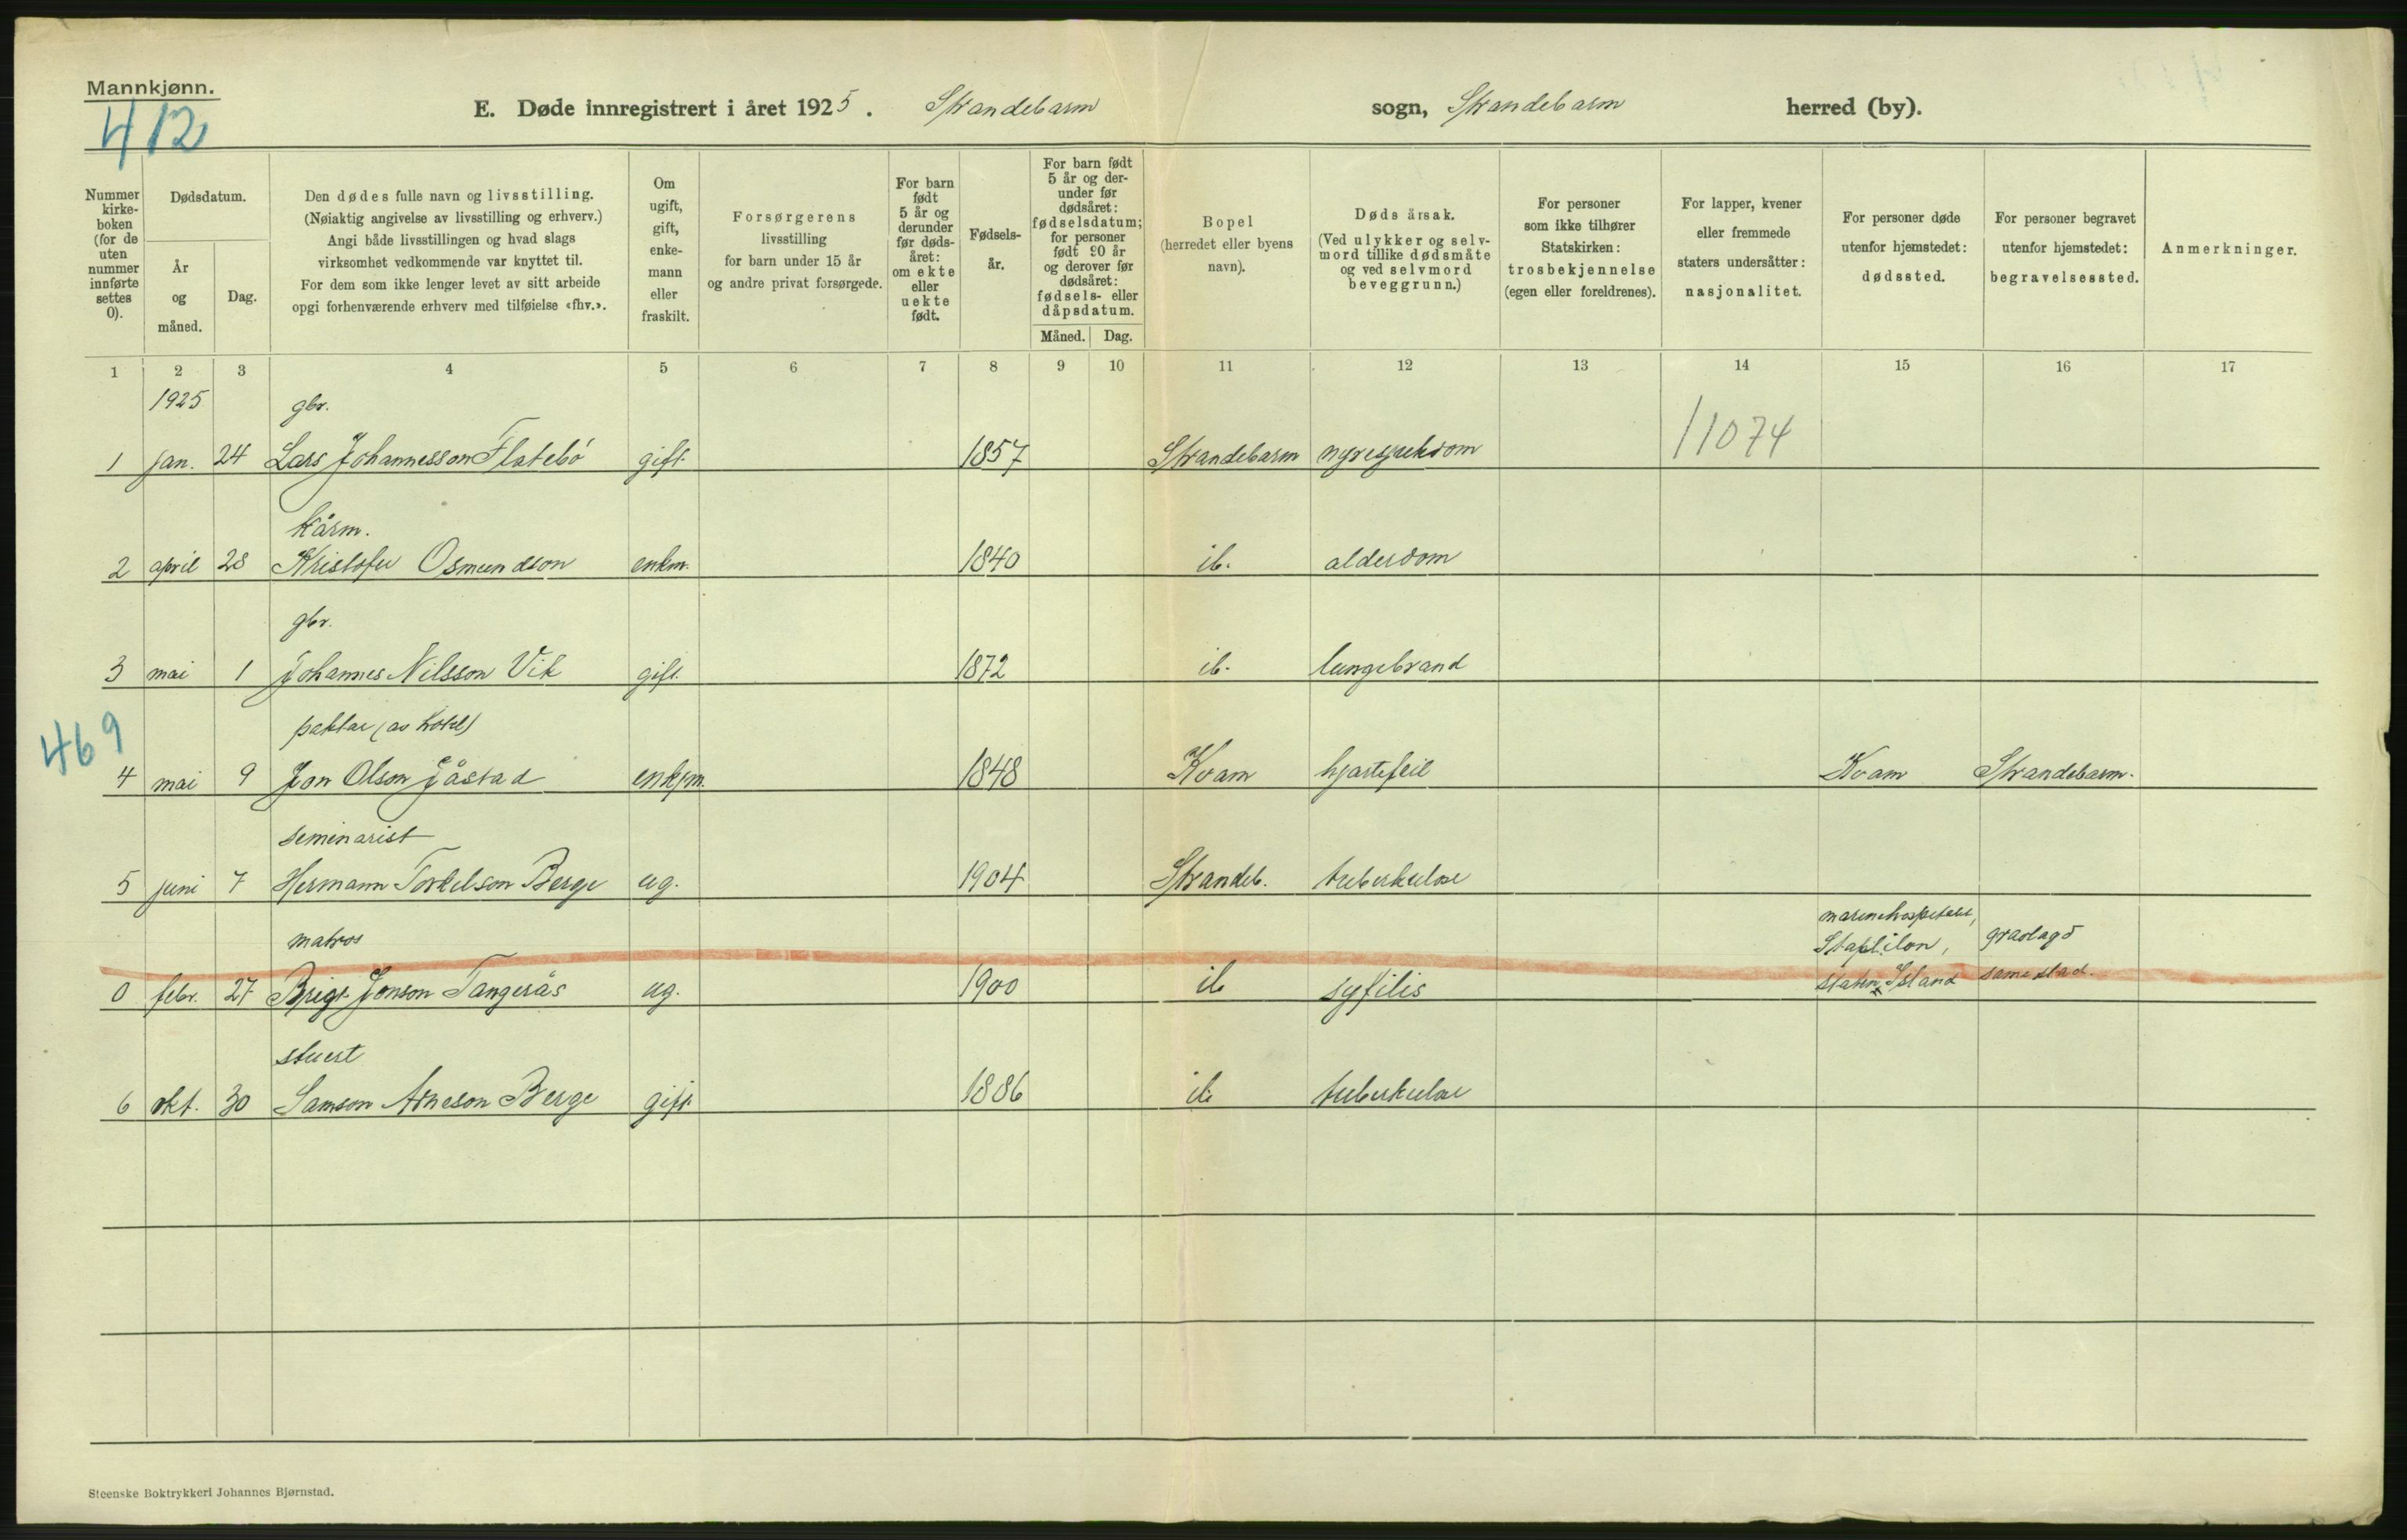 Mannkjønn.
412
E. Døde innregistrert i året 1925. Strandebarm sogn, Strandebarm herred (by).
Nummer kirke-boken (for de uten nummer innførte settes 0).
Dødsdatum.
År og måned.
Dag.
Den dødes fulle navn og livsstilling.
(Nøiaktig angivelse av livsstilling og erhverv.)
Angi både livsstillingen og hvad slags
virksomhet vedkommende var knyttet til.
For dem som ikke lenger levet av sitt arbeide
opgi forhenværende erhverv med tilføielse «fhv.».
Om ugift, gift, enke-mann eller fraskilt.
Forsørgerens
livsstilling
for barn under 15 år
og andre privat forsørgede.
For barn født 5 år og derunder før døds-året: om ekte eller uekte født.
Fødsels-år.
For barn født 5 år og der-under før dødsåret: fødselsdatum; for personer født 90 år og derover før dødsåret: fødsels- eller dåpsdatum.
Måned. Dag.
Bopel
(herredet eller byens
navn).
Dødsårsak.
(Ved ulykker og selv-
mord tillike dødsmåte
og ved selvmord
beveggrunn.)
For personer
som ikke tilhører
Statskirken:
trosbekjennelse
(egen eller foreldrenes).
For lapper, kvener
eller fremmede
staters undersåtter:
nasjonalitet.
For personer døde
utenfor hjemstedet:
dødssted.
For personer begravet
utenfor hjemstedet:
begravelsessted.
Anmerkninger.
1 2 3 4 5 6 7 8 9 10 11 12 13 14 15 16 17
1925 gbr.
1 jan. 24 Lars Johannesson Flatebø gift 1857 Strandebarm nyresjukdom 11074
kårm.
2 april 28 Kristofer Osmundson enkm. 1840 ib. alderdom
gbr.
3 mai 1 Johannes Nilsson Vik gift. 1872 ib. lungebrand
469
paktar (av hotel)
4 mai 9 Jon Olson Jåstad enkjm. 1848 Kvam hjartefeil Kvam Strandebarm.
seminarist
5 juni 7 Hermann Torkelson Berge ug. 1904 Strandeb. tuberkulose
matros marinehospitalet,
Stapl.ilon, gravlagd
0 febr. 27 Brigt Jonson Tangerås ug. 1900 ib syfilis Staten Island samestad.
stuert
6 okt. 30 Samson Arneson Berge gift 1886 ib tuberkulose
Steenske Boktrykkeri Johannes Bjørnstad.